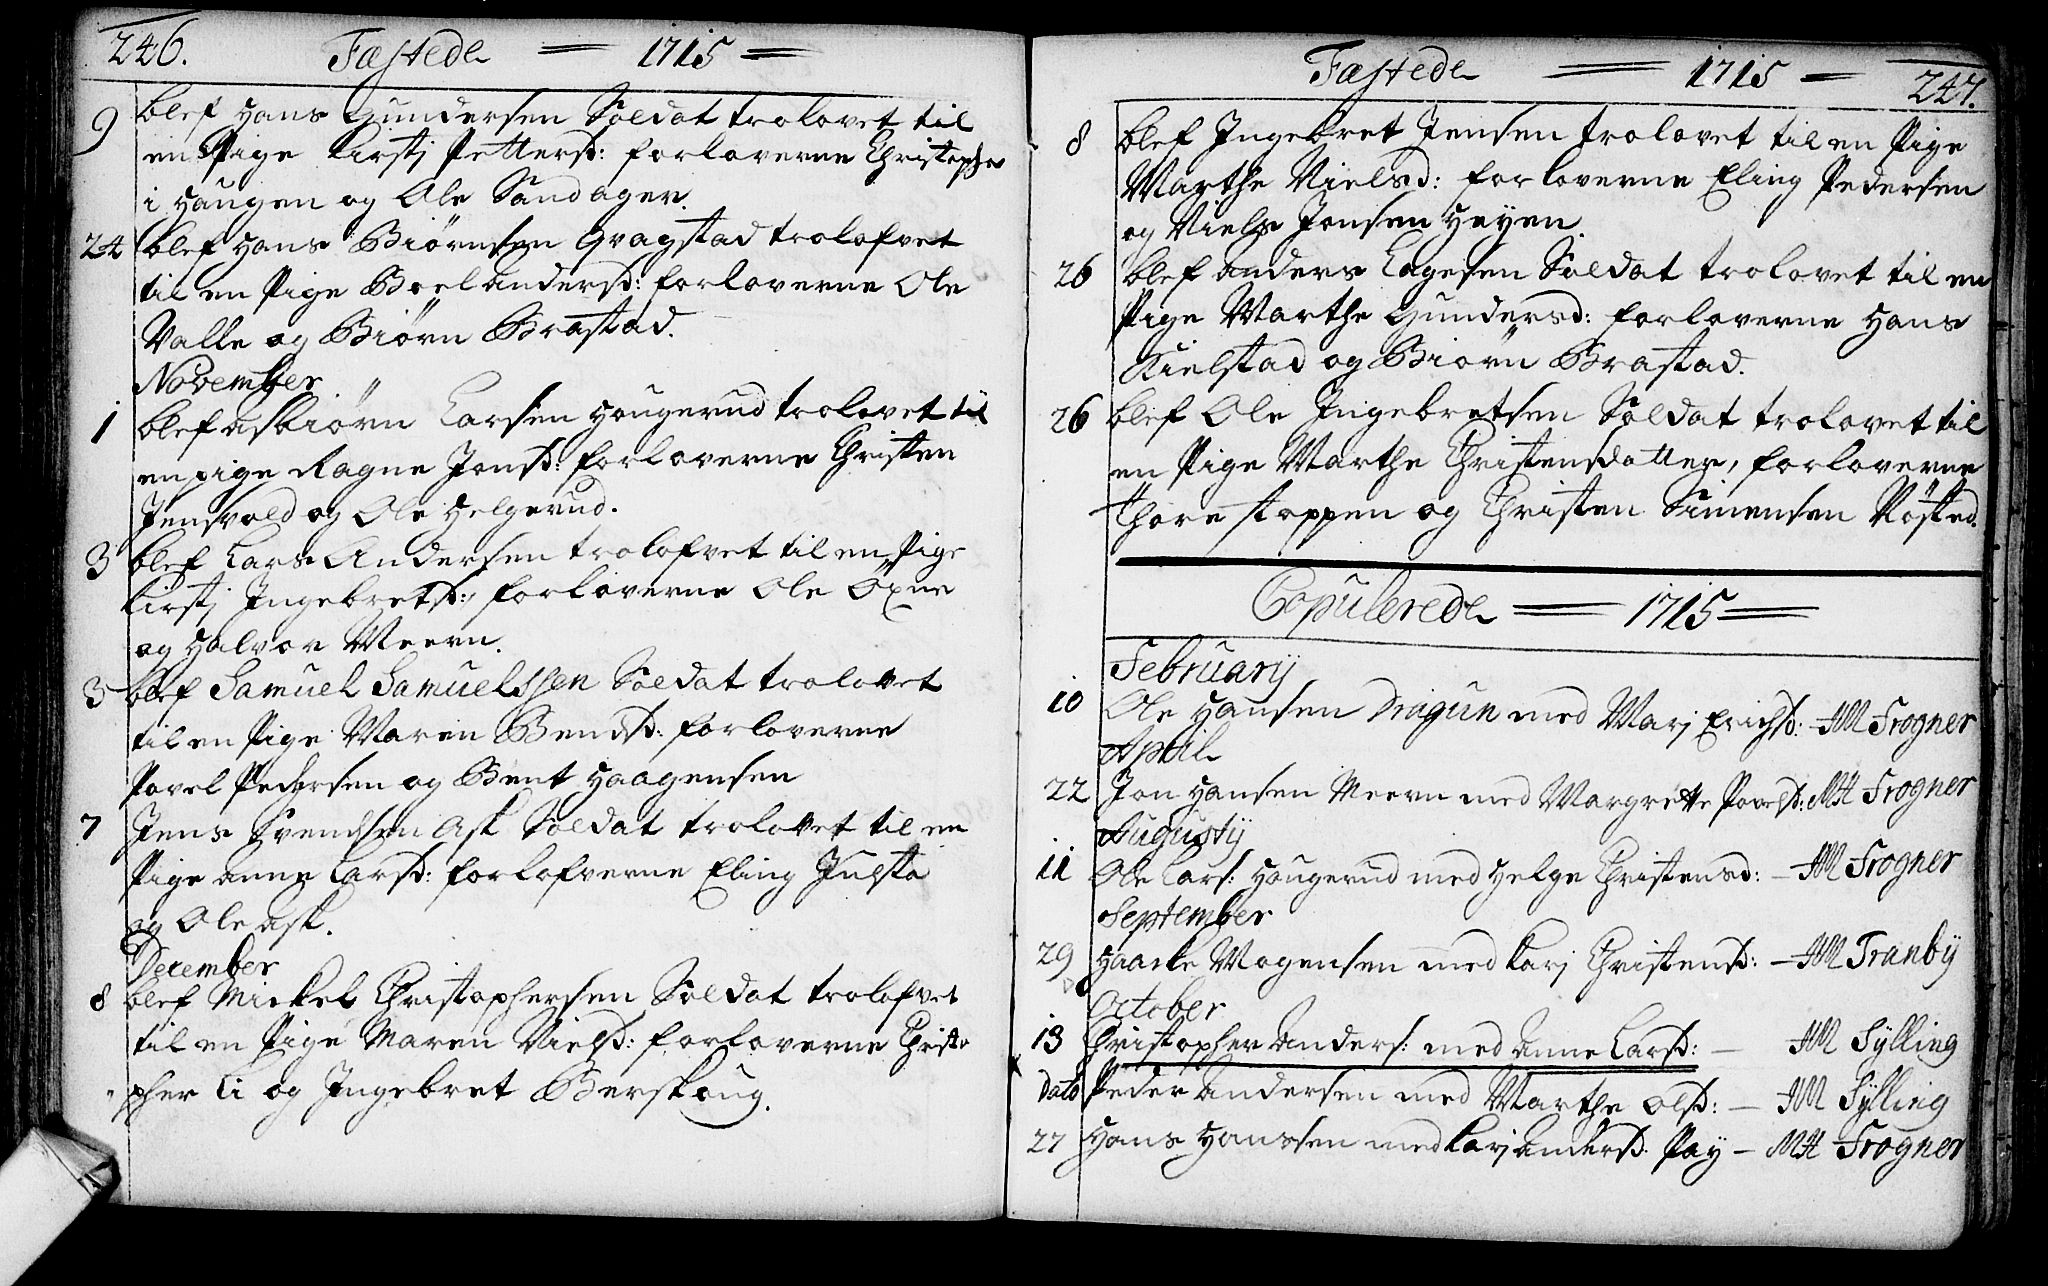 246. Fæstede = 1715 =
9 blef Hans Gundersen Soldat trolovet til
en Pige Kirstj Petters d: forloverne Christopher
i Haugen og Ole Sandager.
24 blef Hans Biörnsen Gragstad trolofvet
til en Pige Boel Anders d: forloverne Ole
Valle og Biörn Brastad.
November
1 blef Asbiörn Larsen Hougerud trolovet til
en pige Ragne Jons d: forloverne Christen
Jensvold og Ole Helgerud.
3 blef Lars Andersen trolofvet til en Pige
Kirstj Ingebrets d: forloverne Ole Öxne
og Halvor Meern.
3 blef Samuel Samuelssen Soldat trolovet
til en Pige Maren Bends d: forloverne
Povel Pedersen og Bent Haagensen
7 Jens Svendsen Ask Soldat trolovet til en
Pige Anne Lars d: forlofverne Eling Julsta
og Ole Ask.
December
8 blef Mickel Christophersen Soldat trolofvet
til en Pige Maren Niels d: forloverne Christo
pher Li og Ingebret Berskoug.
Fæstede = 1715 = 247.
8 blef Ingebret Jensen trolovet til en Pige
Marthe Nielsd: forloverne Eling Pedersen
og Niels Jonsen Høyen.
26 blef Anders Lagesen Soldat trolovet til en
Pige Marthe Gundersd: forloverne Hans
Kielstad og Biörn Brastad.
26 blef Ole Ingebretsen Soldat trolovet til
en Pige Marthe Christensdatter, forloverne
Thore stoppen og Christen Simensen Rösted.
Copulerede = 1715 =
Februarij
10 Ole Hansen Dragun med Marj Erichs d: HM Frogner
April
22 Jon Hansen Meern med Margrette Povels d: MH Frogner
Augustij
11 Ole Lars: Hougerud med Helge Christensd: - HM Frogner
September
29 Haacke Mogensen med Karj Christens d: - HM Tranby
October
13 Christopher Anders: med Anne Lars d: - HM Sylling
Dato Peder Andersen med Marthe Ols d: - HM Sylling
27 Hans Hanssen med Karj Anders d. Pay - MH Frogner